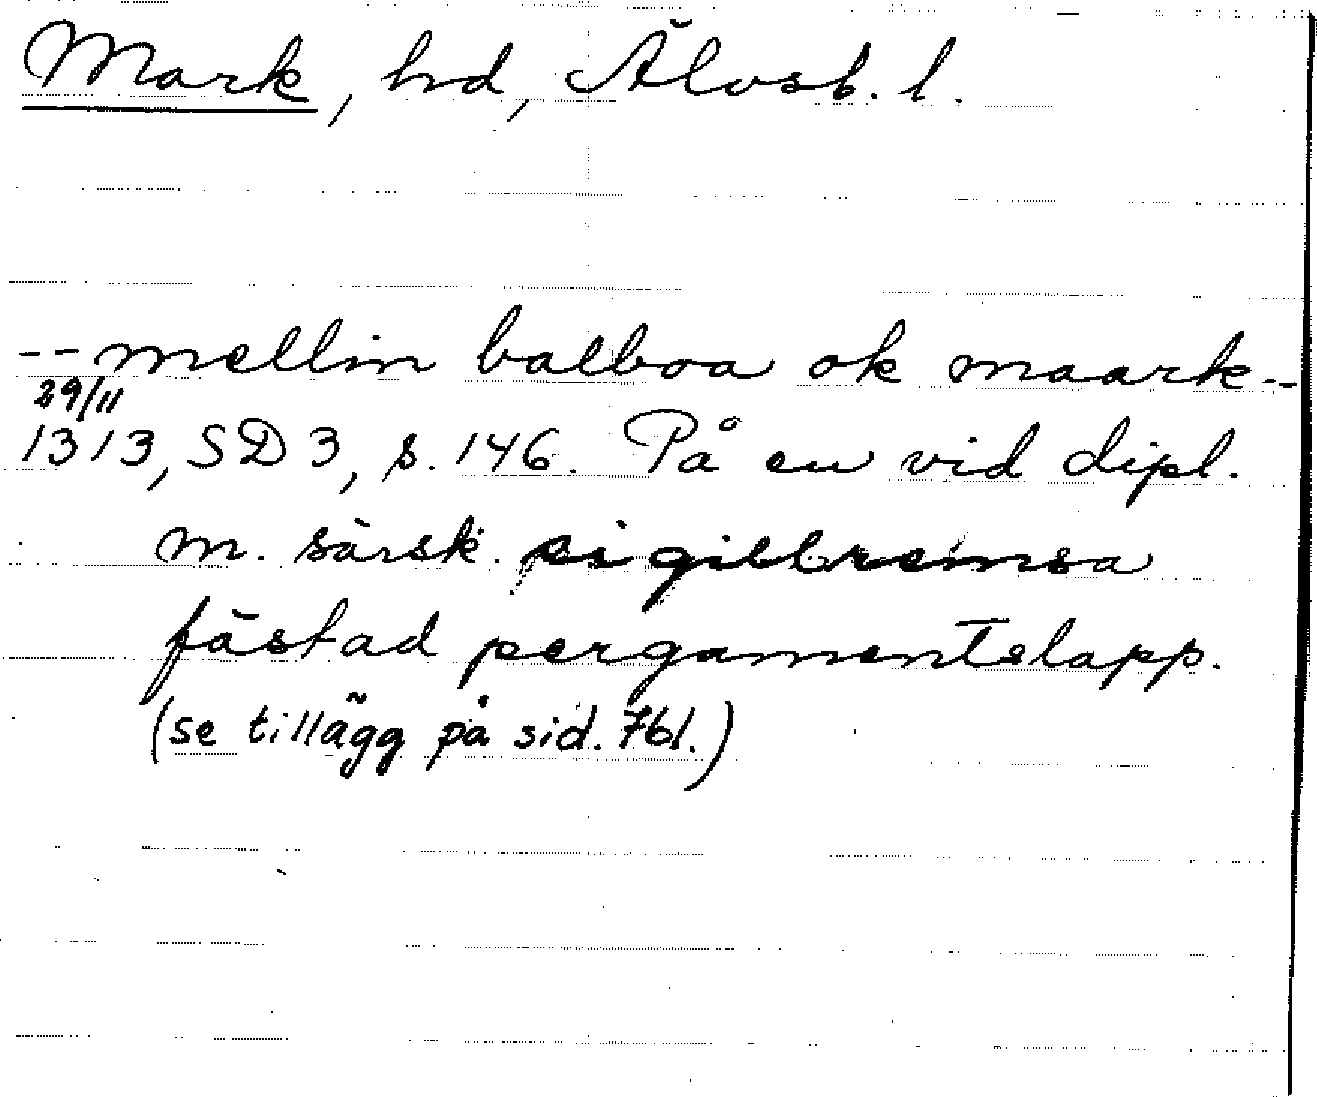 Mark, hd, Älvsb. l.
-- mellin balboa ok maark--
29/11
1313, SD 3, s. 146. På en vid dipl.
m. särsk. sigillremsa
fästad pergamentslapp.
(se tillägg på sid. 761.)